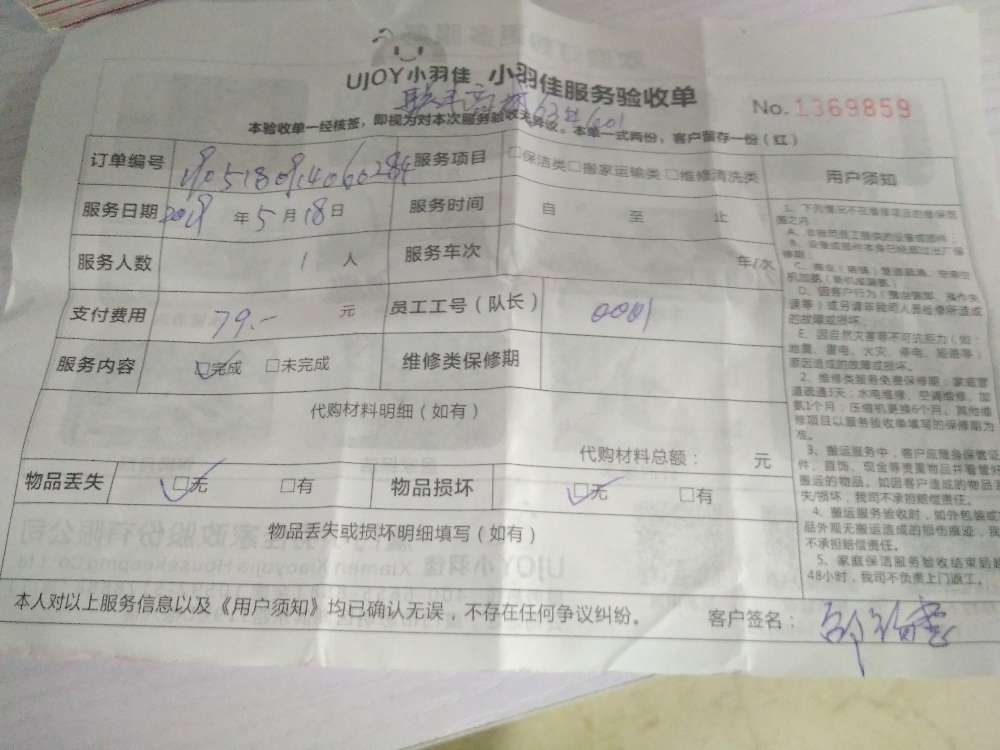 UJOY小羽佳 小羽佳服务验收单
63# 601
No. 1369859
本验收单一经核签，即视为对本次服务验收无异议。本单一式两份，客户留存一份（红）
订单编号 服务项目 □保洁类□搬家运输类 □维修清洗类 用户须知
服务日期 2019 年 5 月 18 日 服务时间 自 至 止
服务人数 1 人 服务车次 年/次
支付费用 79.- 元 员工工号（队长） 0001
服务内容 ☑完成 □未完成 维修类保修期
代购材料明细（如有）
代购材料总额： 元
物品丢失 ☑无 □有 物品损坏 ☑无 □有
物品丢失或损坏明细填写（如有）
本人对以上服务信息以及《用户须知》均已确认无误，不存在任何争议纠纷。 客户签名：
1、下列情况不在维修项目的维保范
围之内：
E、因自然灾害等不可抗力（如：
地震、雷电、火灾、停电、超差等）
原因造成的故障或损坏。
2、维修类服务免费保修期：家庭管
道疏通3天；水电维修、空调维修、加
氨1个月；压缩机更换6个月。其他维
修项目以服务验收单填写的保修期为
准。
3、搬运服务中，客户应随身保管证
件、首饰、现金等贵重物品并看管好
搬运的物品。如因客户造成的物品丢
失/损坏，我司不承担赔偿责任。
4、搬运服务验收时，如外包装或
品外观无搬运造成的损伤痕迹，我
不承担赔偿责任。
5、家庭保洁服务验收结束后超
48小时，我司不负责上门返工。